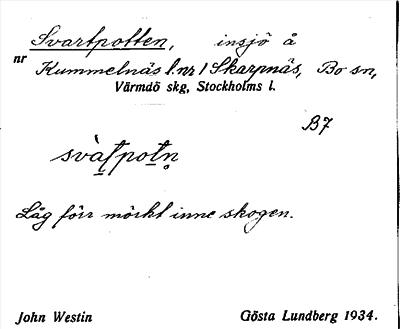 Svartpotten, insjö å
nr Kummelnäs l. nr 1 Skarpnäs, Bo sn,
Värmdö skg, Stockholms l.
B7
svàʈpotn̥
Låg förr mörkt inne skogen.
John Westin Gösta Lundberg 1934.